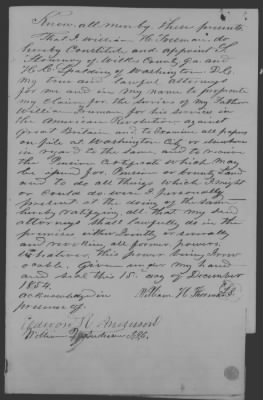 Know all men by these presents
That I William H. Freeman do
hereby Constitute and appoint
of Wilks County Ga. and
H. C. Spalding of Washington D.C.
my true and lawful attorneys
for me and in my name to prosecute
my Claim for the services of my Father
William Freeman for his service in
the American Revolution against
Great Britain and to Examine all papers
on file at Washington City or elsewhere
in regard to the same, and to receive
the Pension Certificate which may
be issued for Pension or bounty Land
and to do all things which I might
or Could do were I personally
present at the doing of the same
hereby ratifying all that my said
attorneys shall lawfully do in the
premises either Jointly or severally
and revoking all former powers
Whatever, this power being Irrev
ocable. Given under my hand
and seal this 15th day of December
1854.
acknowledged in William H Freeman LS
presence of
Anderson
William